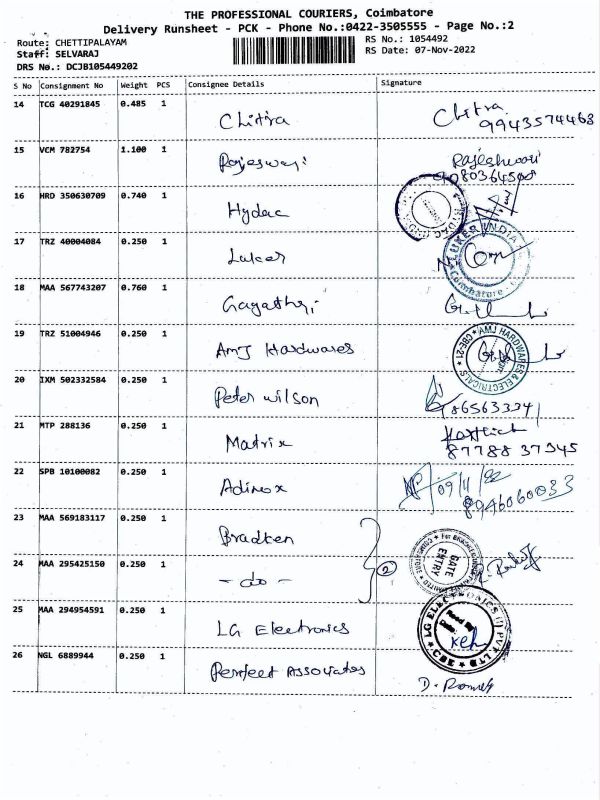 THE PROFESSIONAL COURIERS, Coimbatore
Delivery Runsheet - PCK - Phone No.:0422-3505555 - Page No.:2
Route: CHETTIPALAYAM RS No.: 1054492
Staff: SELVARAJ RS Date: 07-Nov-2022
DRS No.: DCJB105449202
S No Consignment No Weight PCS Consignee Details Signature
14 TCG 40291845 0.485 1 Chitra Chitra
9943574468
15 VCM 782754 1.100 1 Rajeswari Rajeshwari
9080364508
16 HRD 350630709 0.740 1 Hydac
17 TRZ 40004084 0.250 1 Luker LUKER INDIA
Coimbatore
18 MAA 567743207 0.760 1 Gayathri
19 TRZ 51004946 0.250 1 AMJ Hardwares AMJ HARDWARES & ELECTRICALS * CBE-21 *
20 IXM 502332584 0.250 1 Peter Wilson
21 MTP 288136 0.250 1 Matrix
87788 37345
22 SPB 10100082 0.250 1 Adinox 09/11/22
8946060033
23 MAA 569183117 0.250 1 Bradken
24 MAA 295425150 0.250 1 - do - 2 GATE ENTRY
25 MAA 294954591 0.250 1 LG Electronics LG ELECTRONICS (I) PVT LTD * CBE *
26 NGL 6889944 0.250 1 Perfect Associates D.